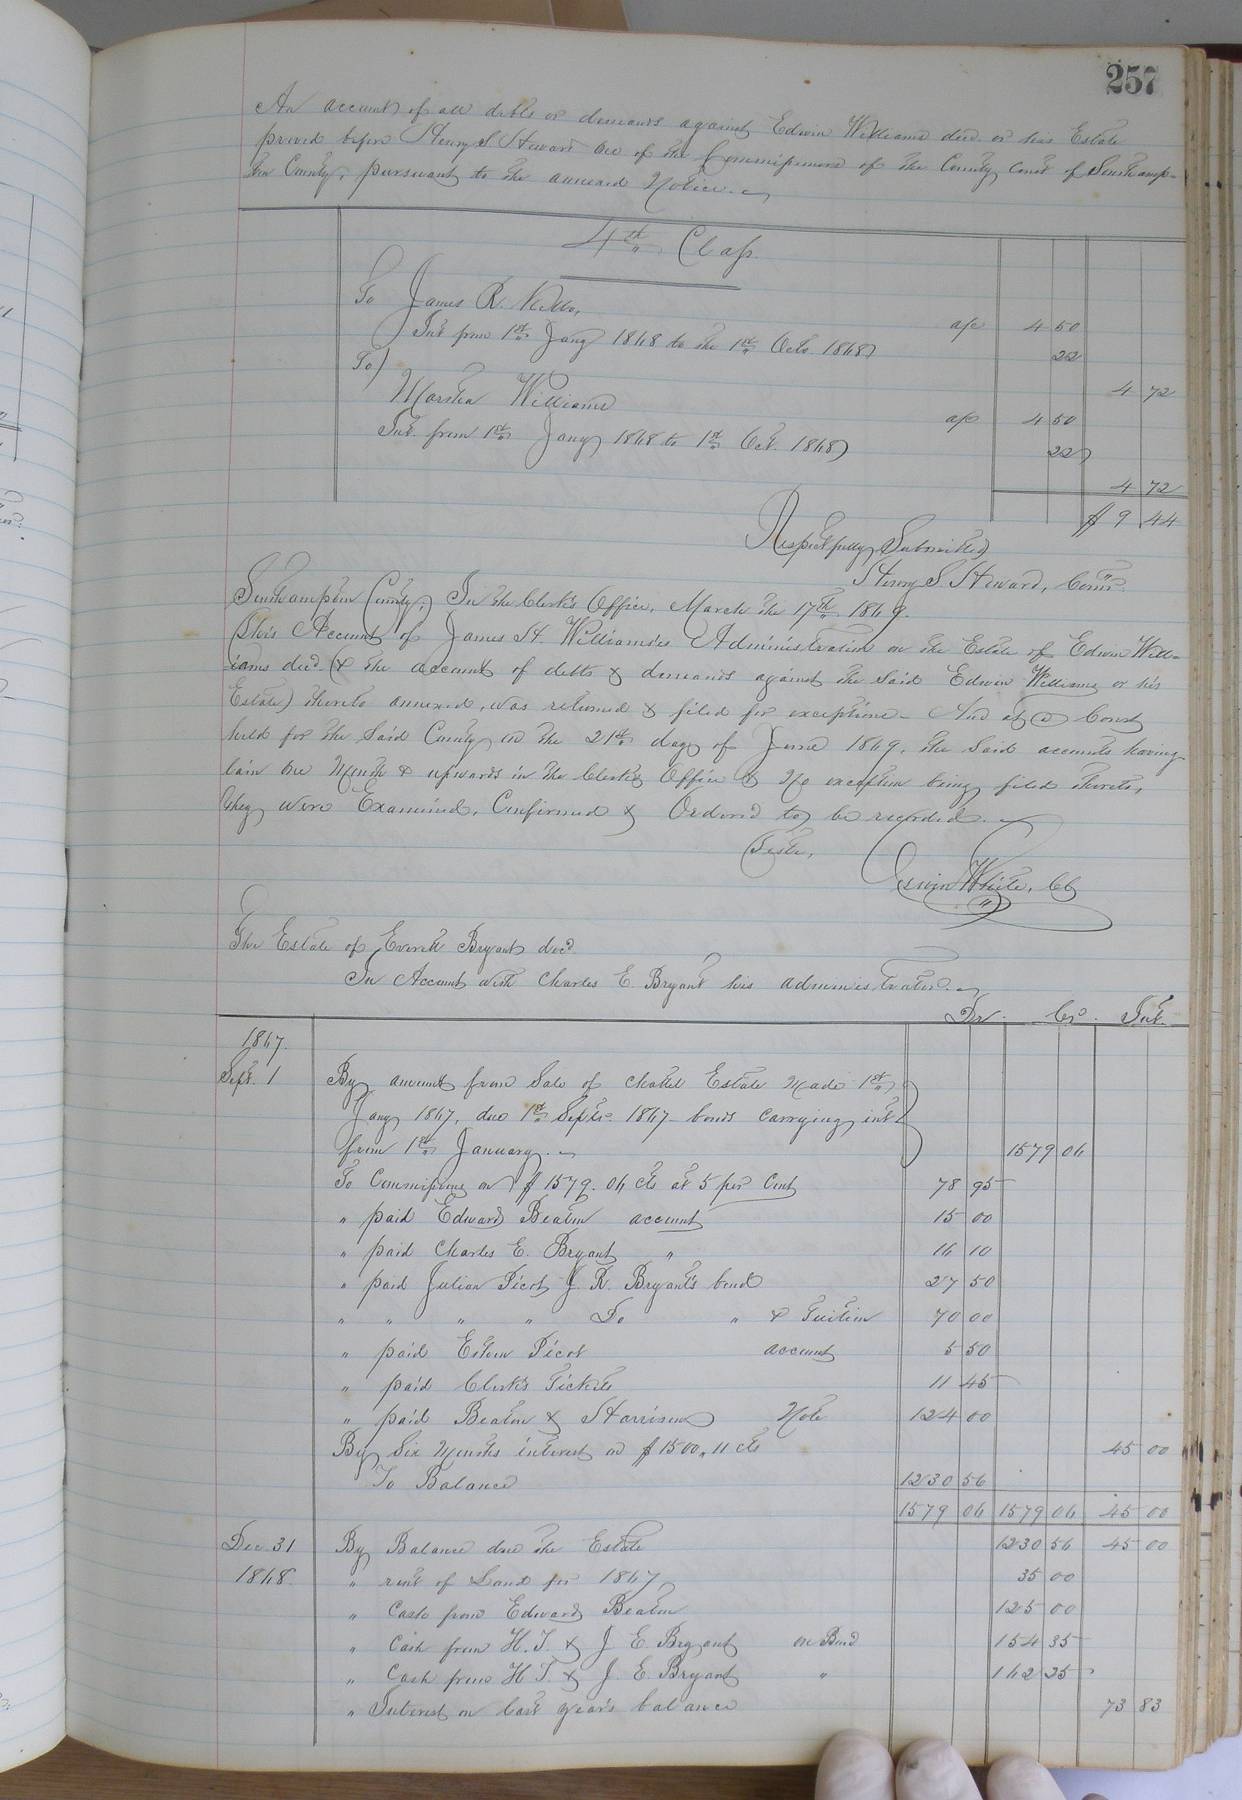 257
An account of all debts or demands against Edwin Williams decd or his Estate
proved before Henry S Steward one of the Commissioners of the County Court of Southamp-
ton County, pursuant to the annexed Notice.
4th Class
To James R. a/c 4 50
Int from 1st Jany 1868 to the 1st Octo. 1868 22
4 72
To
Martha Williams a/c 4 50
Int. from 1st Jany 1868 to 1st Oct. 1868 22
4 72
$ 9 44
Respectfully Submitted
Henry S. Steward, Comr.
Southampton County, In the Clerk's Office, March the 17th 1869.
This Account of James H. Williams's Administration on the Estate of Edwin Will-
iams decd (& the account of debts & demands against the said Edwin Williams or his
Estate) thereto annexed, was returned & filed for exceptions - And at a Court
held for the said County on the 21st day of June 1869, the said accounts having
lain one Month & upwards in the Clerk's Office & No exception being filed thereto,
they were Examined, Confirmed & Ordered to be recorded.
Teste,
White, CC
The Estate of Everett Bryant decd.
In Account with Charles E. Bryant his administrator.
Dr. Cr. Int.
1867.
Sept. 1 By amount from Sale of chattel Estate made 1st
Jany 1867, due 1st Septr. 1867 bonds carrying int
from 1st January. 1579 06
To Commissions on $1579.06 cts at 5 per Cent 78 95
" paid Edward Beaton account 15 00
" paid Charles E. Bryant " 16 10
" paid Julian Picot J. R. Bryant's bond 27 50
" " " " Do " & Tuition 70 00
" paid Picot account 5 50
" paid Clerk's Tickets 11 45
" paid Beaton & Harrison Note 124 00
By Six Months interest on $1500.11 cts 45 00
To Balance 1230 56
1579 06 1579 06 45 00
Dec. 31 By Balance due the Estate 1230 56 45 00
1868. " rent of Land for 1867 35 00
" Cash from Edward Beaton 125 00
" Cash from H. T. & J E. Bryant on Bond 154 35
" Cash from H T. & J. E. Bryant " 162 25
" Interest on last year's balance 73 83